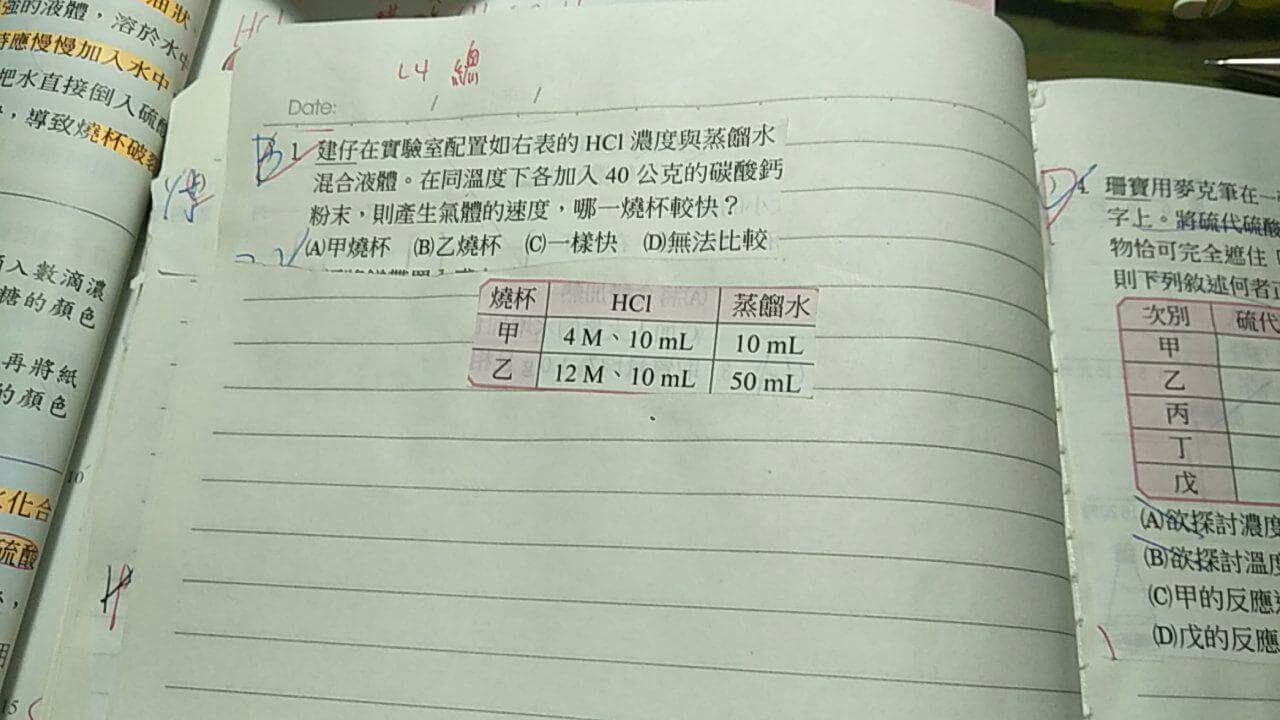 油狀
強的液體，溶於水中
時應慢慢加入水中
把水直接倒入硫酸
，導致燒杯破裂
滴入數滴濃
糖的顏色
再將紙
的顏色
10
水化合
硫酸
15
HCl
L4 總
Date: / /
B 1. 建仔在實驗室配置如右表的 HCl 濃度與蒸餾水
混合液體。在同溫度下各加入 40 公克的碳酸鈣
粉末，則產生氣體的速度，哪一燒杯較快？
(A)甲燒杯 (B)乙燒杯 (C)一樣快 (D)無法比較
燒杯 HCl 蒸餾水
甲 4 M、10 mL 10 mL
乙 12 M、10 mL 50 mL
D ) 4. 珊寶用麥克筆在一
字上。將硫代硫酸
物恰可完全遮住「
則下列敘述何者正
次別 硫代
甲
乙
丙
丁
戊
(A)欲探討濃度
(B)欲探討溫度
(C)甲的反應
(D)戊的反應